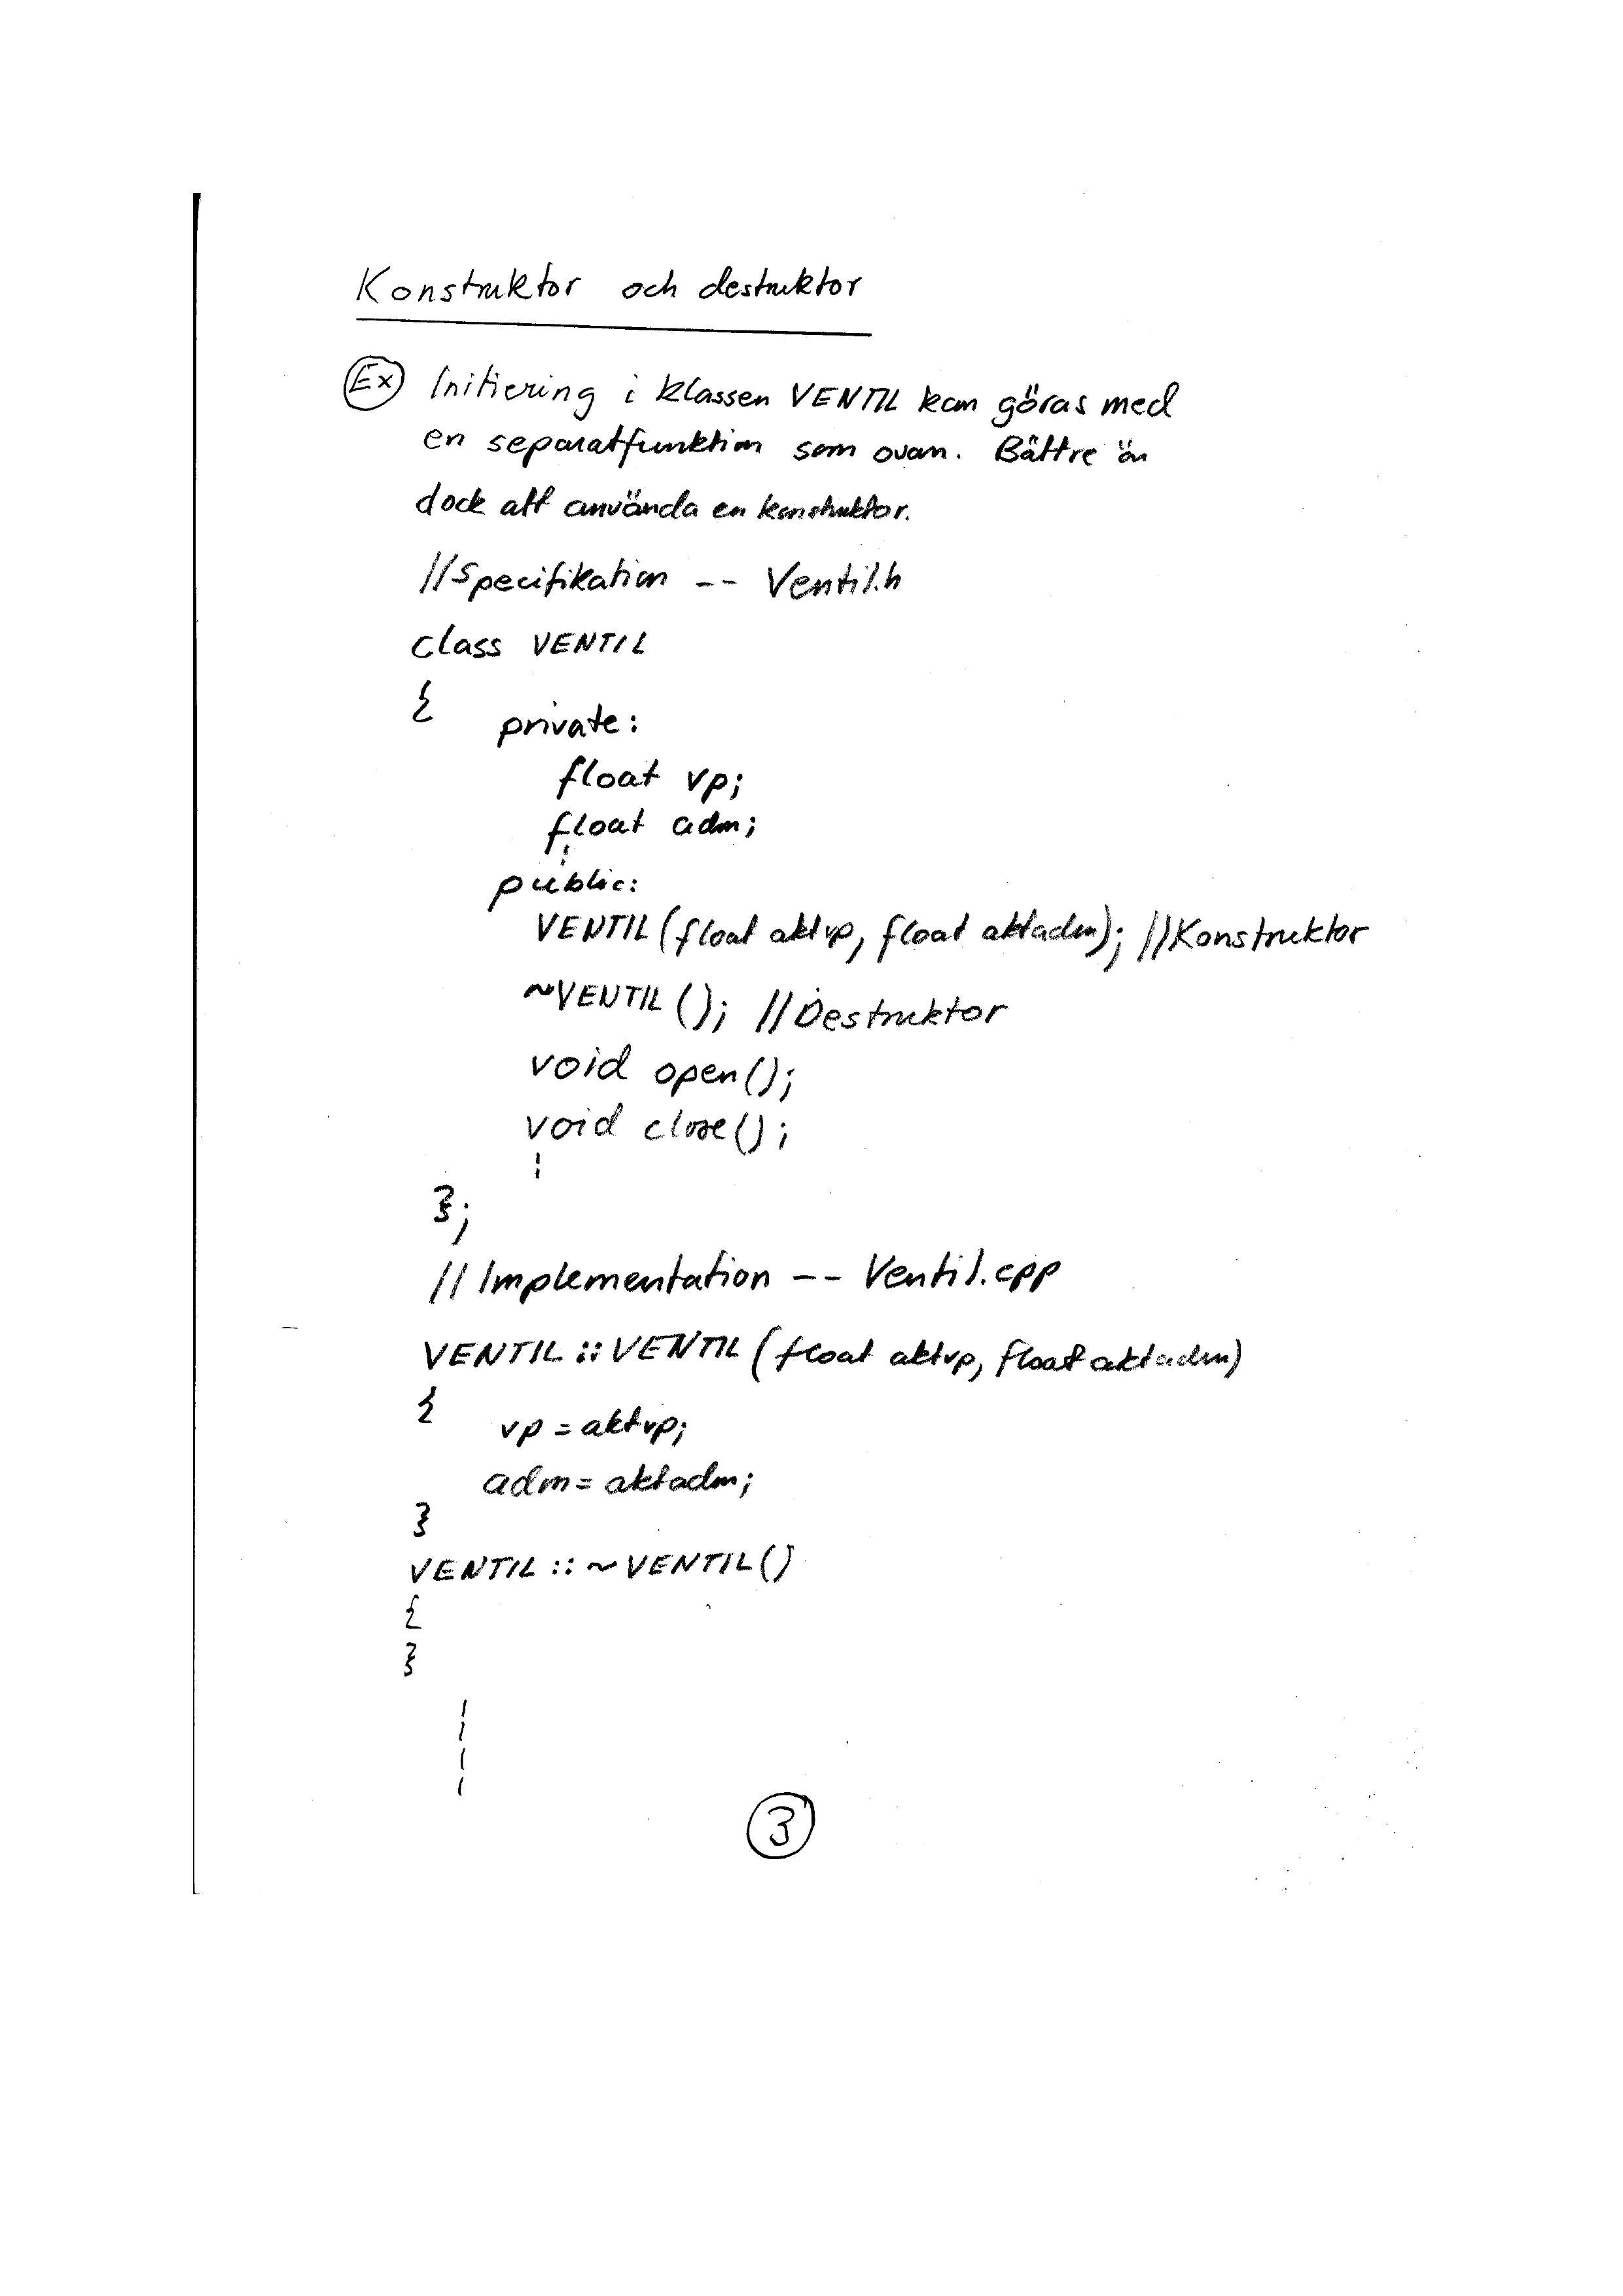 Konstruktor och destruktor
Ex Initiering i klassen VENTIL kan göras med
en separatfunktion som ovan. Bättre än
dock att använda en konstruktor.
//Specifikation -- Ventil.h
class VENTIL
{
private:
float vp;
float adm;
public:
VENTIL(float aktvp, float aktadm); //Konstruktor
~VENTIL(); //Destruktor
void open();
void close();
};
//Implementation -- Ventil.cpp
VENTIL::VENTIL(float aktvp, float aktadm)
{
vp = aktvp;
adm = aktadm;
}
VENTIL::~VENTIL()
{
}
3